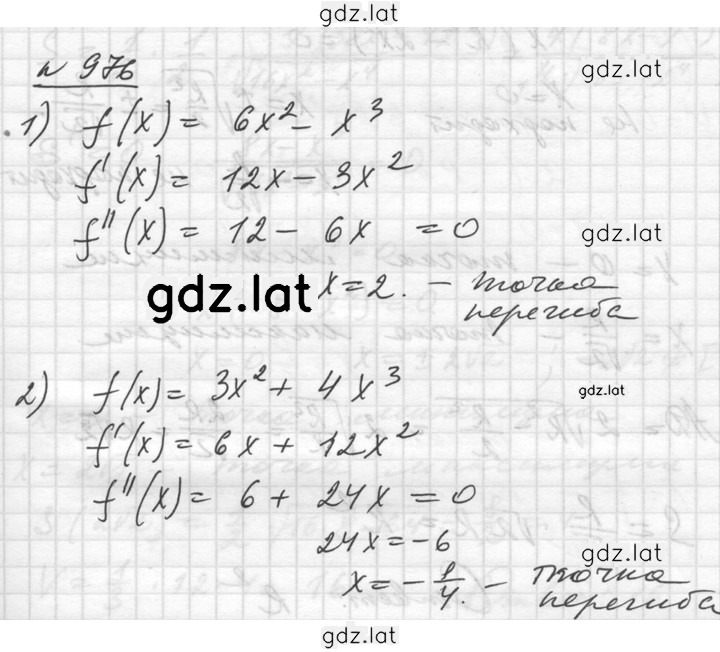 gdz.lat
№ 976
gdz.lat
1) f(x) = 6x² - x³
f'(x) = 12x - 3x²
f''(x) = 12 - 6x = 0
gdz.lat
gdz.lat
x = 2. - точка
перегиба
2) f(x) = 3x² + 4x³
gdz.lat
f'(x) = 6x + 12x²
f''(x) = 6 + 24x = 0
24x = -6
gdz.lat
x = -1/4. - точка
перегиба
gdz.lat